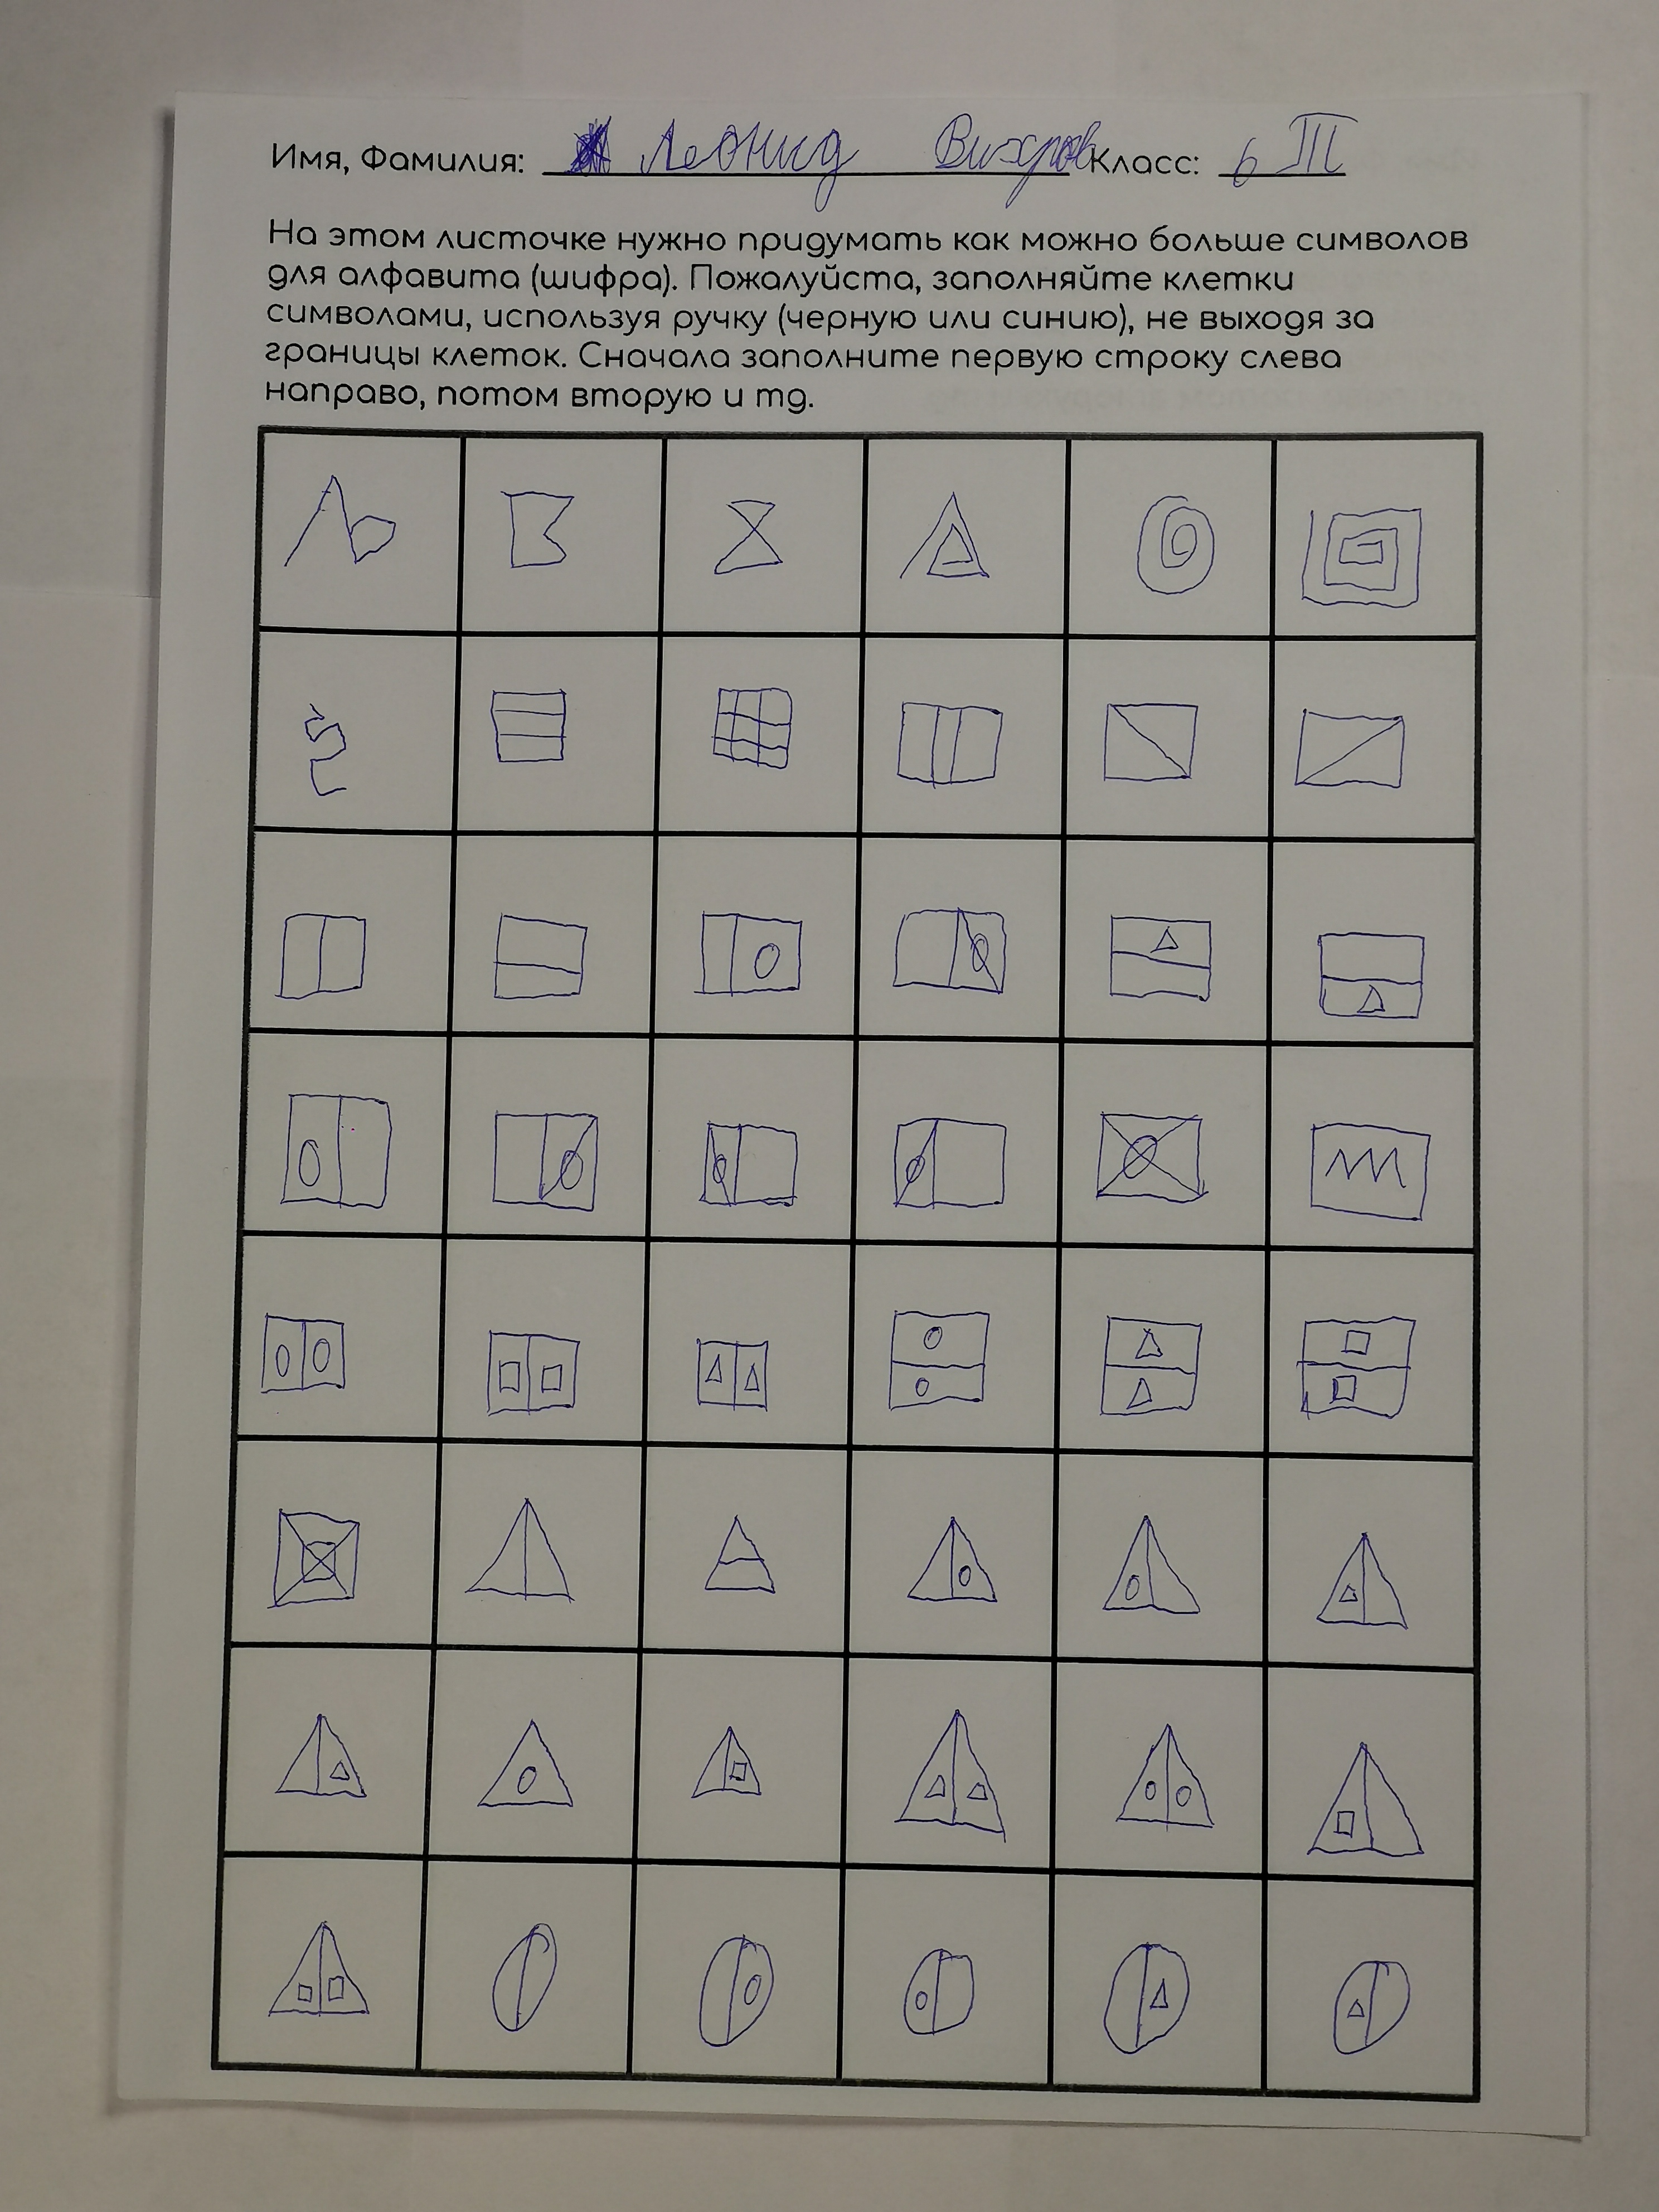 Имя, Фамилия: Леонид Вихров Класс: 6 III
На этом листочке нужно придумать как можно больше символов
для алфавита (шифра). Пожалуйста, заполняйте клетки
символами, используя ручку (черную или синию), не выходя за
границы клеток. Сначала заполните первую строку слева
направо, потом вторую и тд.